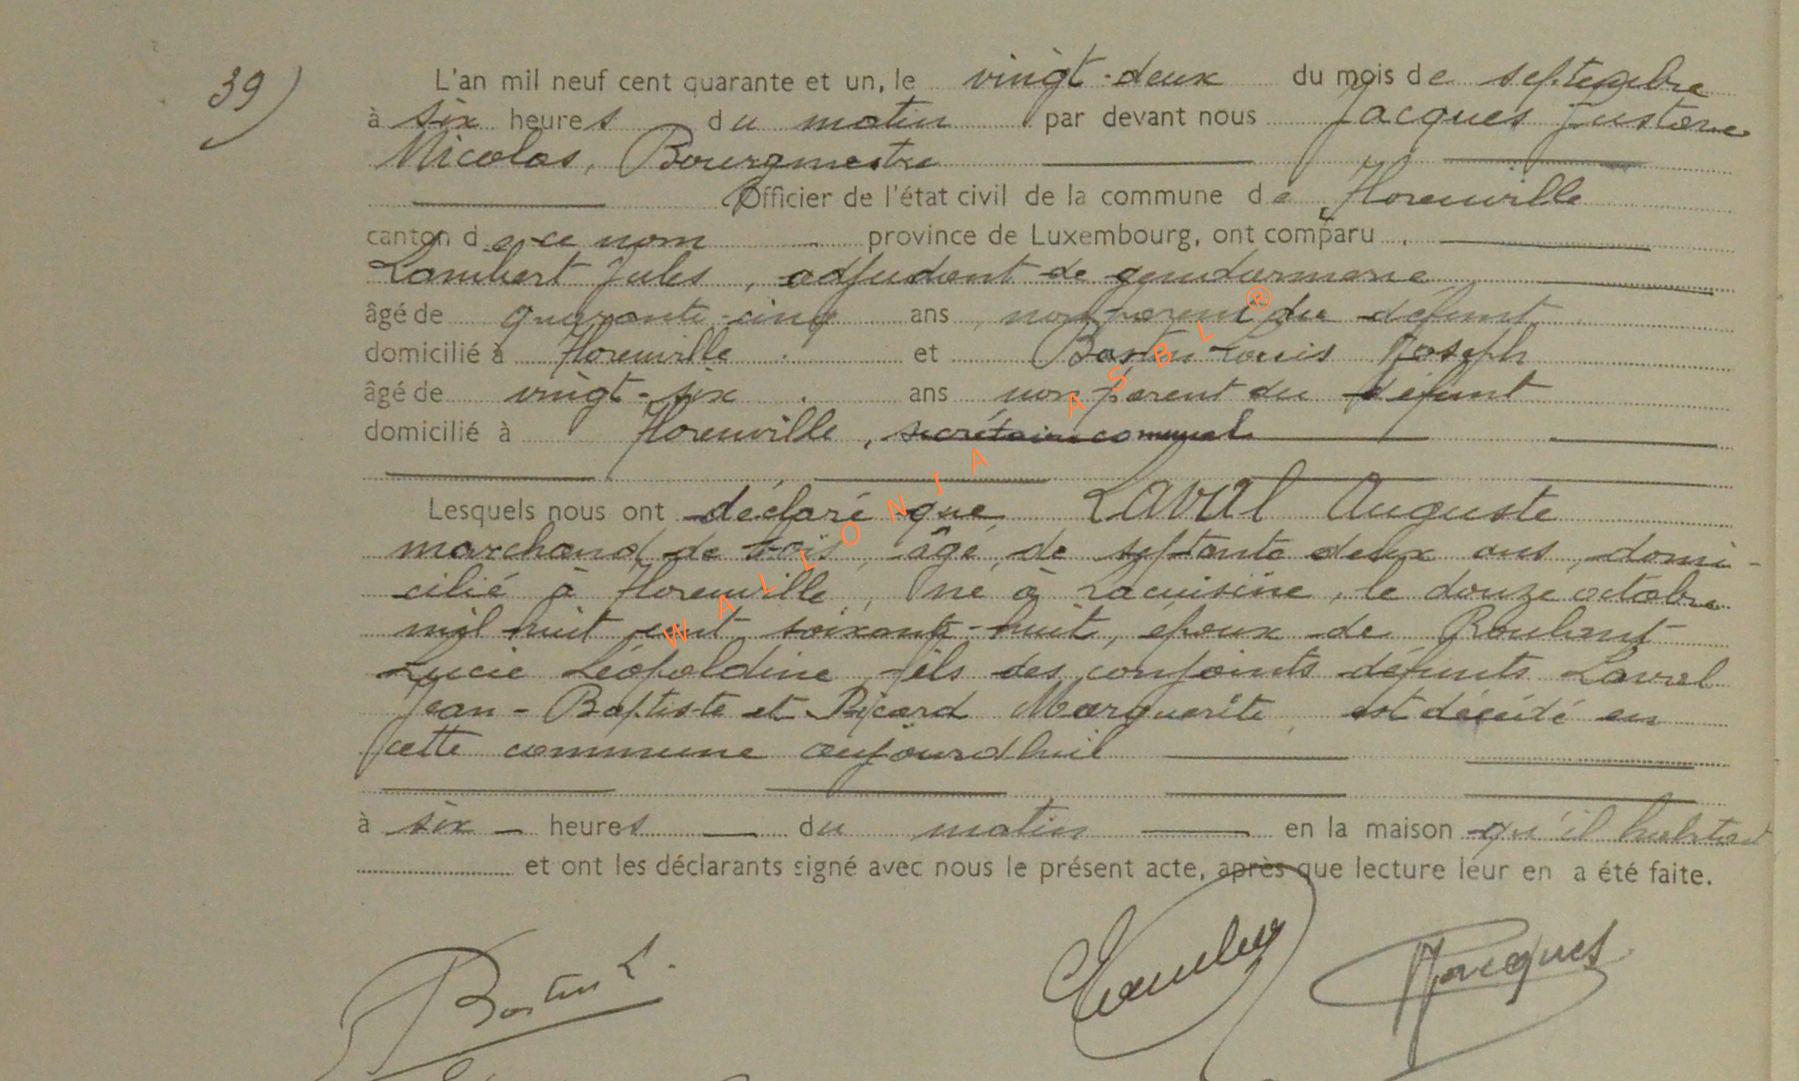 39)
L'an mil neuf cent quarante et un, le vingt-deux du mois de septembre
à six heures du matin par devant nous Jacques Justave
Nicolas, Bourgmestre
Officier de l'état civil de la commune de Florenville
canton de ce nom province de Luxembourg, ont comparu
Lambert Jules, adjudant de gendarmerie
âgé de quarante-cinq ans, non parent du défunt
domicilié à Florenville et Bastin Louis Joseph
âgé de vingt-six ans non parent du défunt
domicilié à Florenville, secrétaire communal
Lesquels nous ont déclaré que LAVAL Auguste
marchand de bois, âgé de septante deux ans, domi-
cilié à Florenville, né à Lacuisine, le douze octobre
mil huit cent soixante-huit, époux de
Lucie Léopoldine, fils des conjoints défunts Laval
Jean-Baptiste et Picard Marguerite, est décédé en
cette commune aujourd'hui
à six heures du matin en la maison qu'il habitait
et ont les déclarants signé avec nous le présent acte, après que lecture leur en a été faite.
Bastin L. Jacques
WALLONIA ASBL ®